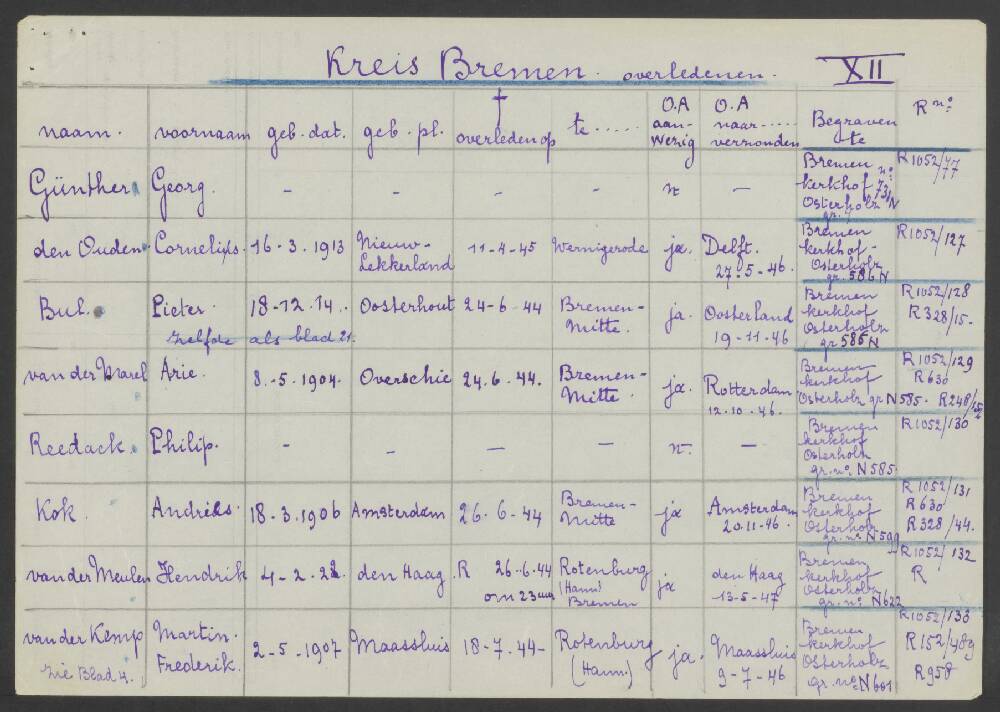 Kreis Bremen. overledenen. XII
naam. voornaam geb. dat. geb. pl. † overleden op te ..... O.A aan- wezig O.A naar ..... verzonden Begraven te R no:
Günther Georg. – – – – n – Bremen kerkhof no: 73/N Osterholz gr. R1052/77
den Ouden Cornelis 16-3.1913 Nieuw- Lekkerland 11-4-45 Wernigerode ja. Delft. 27-5-46. Bremen kerkhof- Osterholz gr. 586 N R1052/127
Bul. Pieter 18-12.14. Oosterhout 24-6-44 Bremen- Mitte. ja. Oosterland 19-11-46 Bremen kerkhof Osterholz gr 585 N R1052/128 R328/15-
zelfde als blad 21.
van der Marel Arie. 8.-5.1904. Overschie 24.6-44. Bremen- Mitte. ja. Rotterdam 12.10-46. Bremen kerkhof Osterholz gr N585. R1052/129 R630 R248/
Reedack. Philip. – – – – n. – Bremen kerkhof Osterholz gr. no: N585. R1052/130
Kok. Andries. 18-3.1906 Amsterdam 26-6-44 Bremen- Mitte ja Amsterdam 20.11-46. Bremen kerkhof Osterholz gr. no N599 R1052/131 R630 R328/44.
van der Meulen Hendrik 4-2.22. den Haag. R 26-6.44 om 23 uur Rotenburg (Hann.) Bremen ja den Haag 13-5-47 Bremen kerkhof Osterholz gr: no: N622 R1052/132 R
van der Kemp Martin. Frederik. 2-5-1907 Maassluis 18-7.44- Rotenburg (Hann.) ja. Maassluis 9-7-46 Bremen kerkhof Osterholz gr. no: N601 R1052/133 R152/489 R958
zie Blad 4.